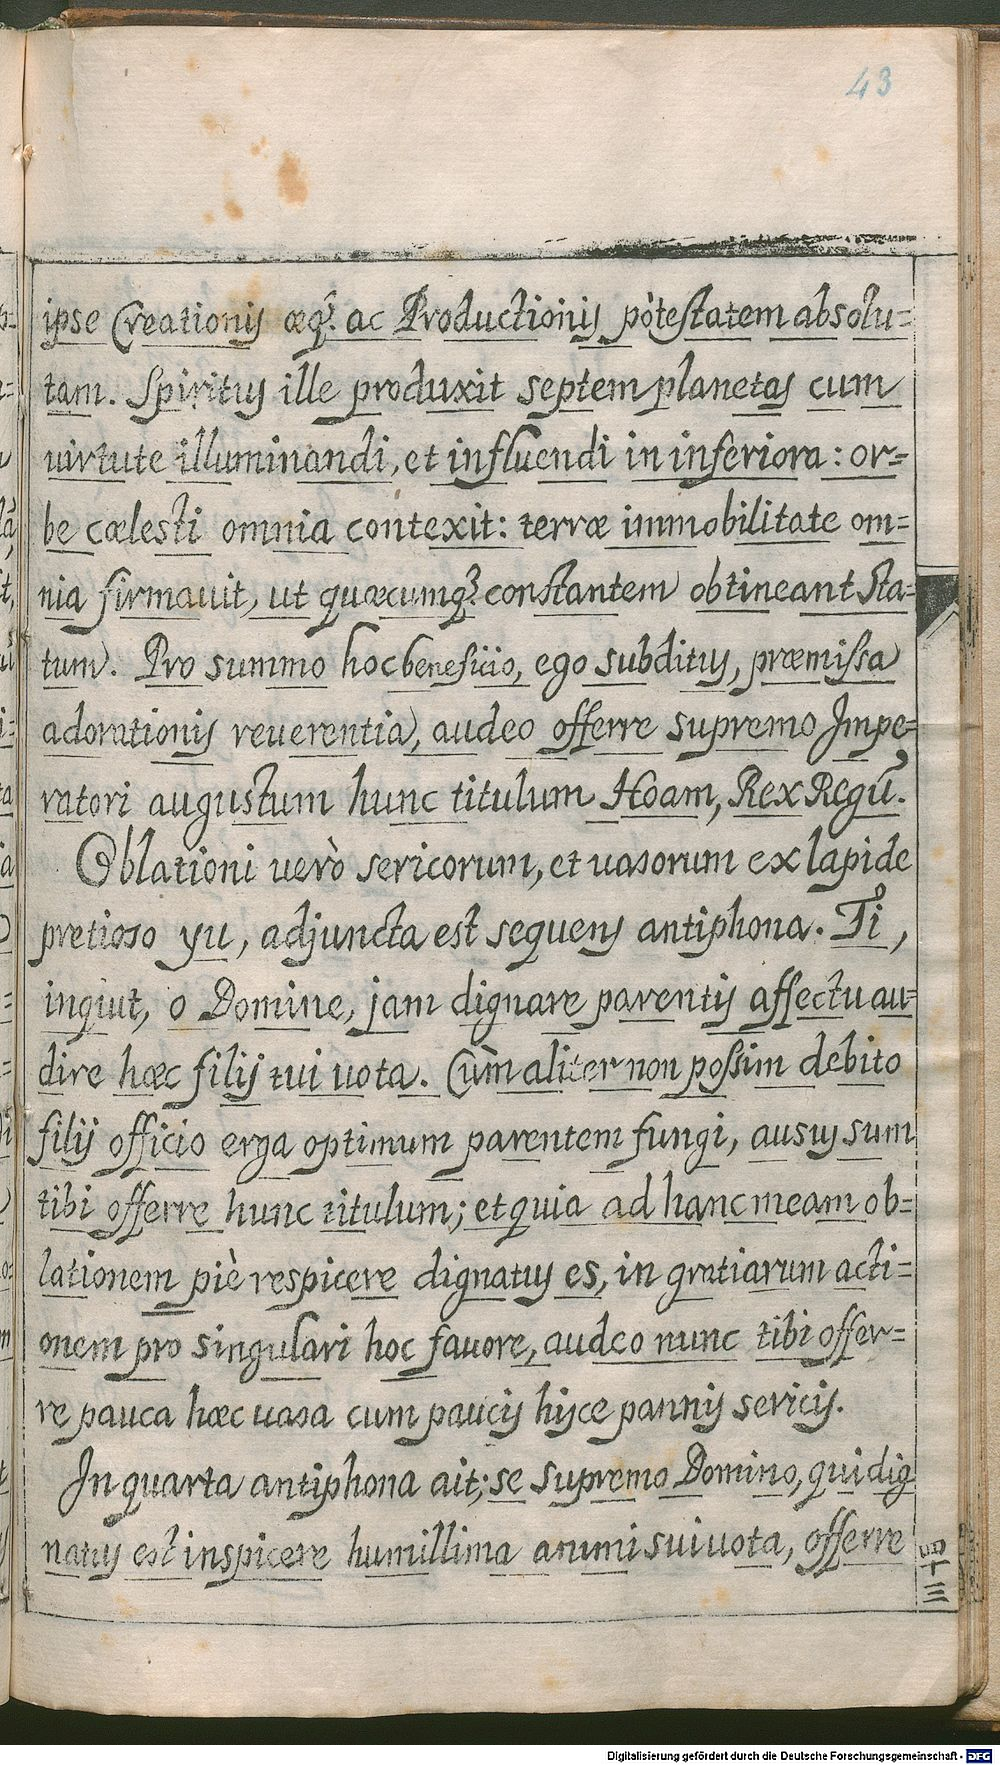 43
ipse Creationis æq3. ac Productionis potestatem absolu=
tam. Spiritus ille produxit septem planetas cum
virtute illuminandi, et influendi in inferiora: or=
be cælesti omnia contexit: terræ immobilitate om=
nia firmauit, ut quæcumq3 constantem obtineant sta=
tum. Pro summo hoc beneficio, ego subditus, præmissa
adorationis reuerentia, audeo offerre supremo Impe=
ratori augustum hunc titulum Hoam, Rex Regū.
Oblationi verò sericorum, et uasorum ex lapide
pretioso yu, adjuncta est sequens antiphona. Ti,
inquit, o Domine, jam dignare parentis affectu au=
dire hæc filij tui uota. Cùm aliter non possim debito
filij officio erga optimum parentem fungi, ausus sum
tibi offerre hunc titulum; et quia ad hanc meam ob=
lationem piè respicere dignatus es, in gratiarum acti=
onem pro singulari hoc fauore, audeo nunc tibi offer=
re pauca hæc uasa cum paucis hisce pannis sericis.
In quarta antiphona ait; se supremo Domino, qui dig
natus est inspicere humillima animi sui uota, offerre
四十三
Digitalisierung gefördert durch die Deutsche Forschungsgemeinschaft - DFG